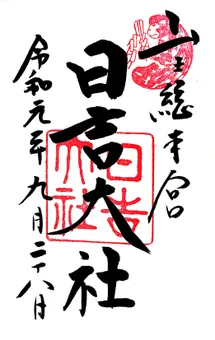 山王総本宮
日吉大社
令和元年九月二十八日
日吉大社